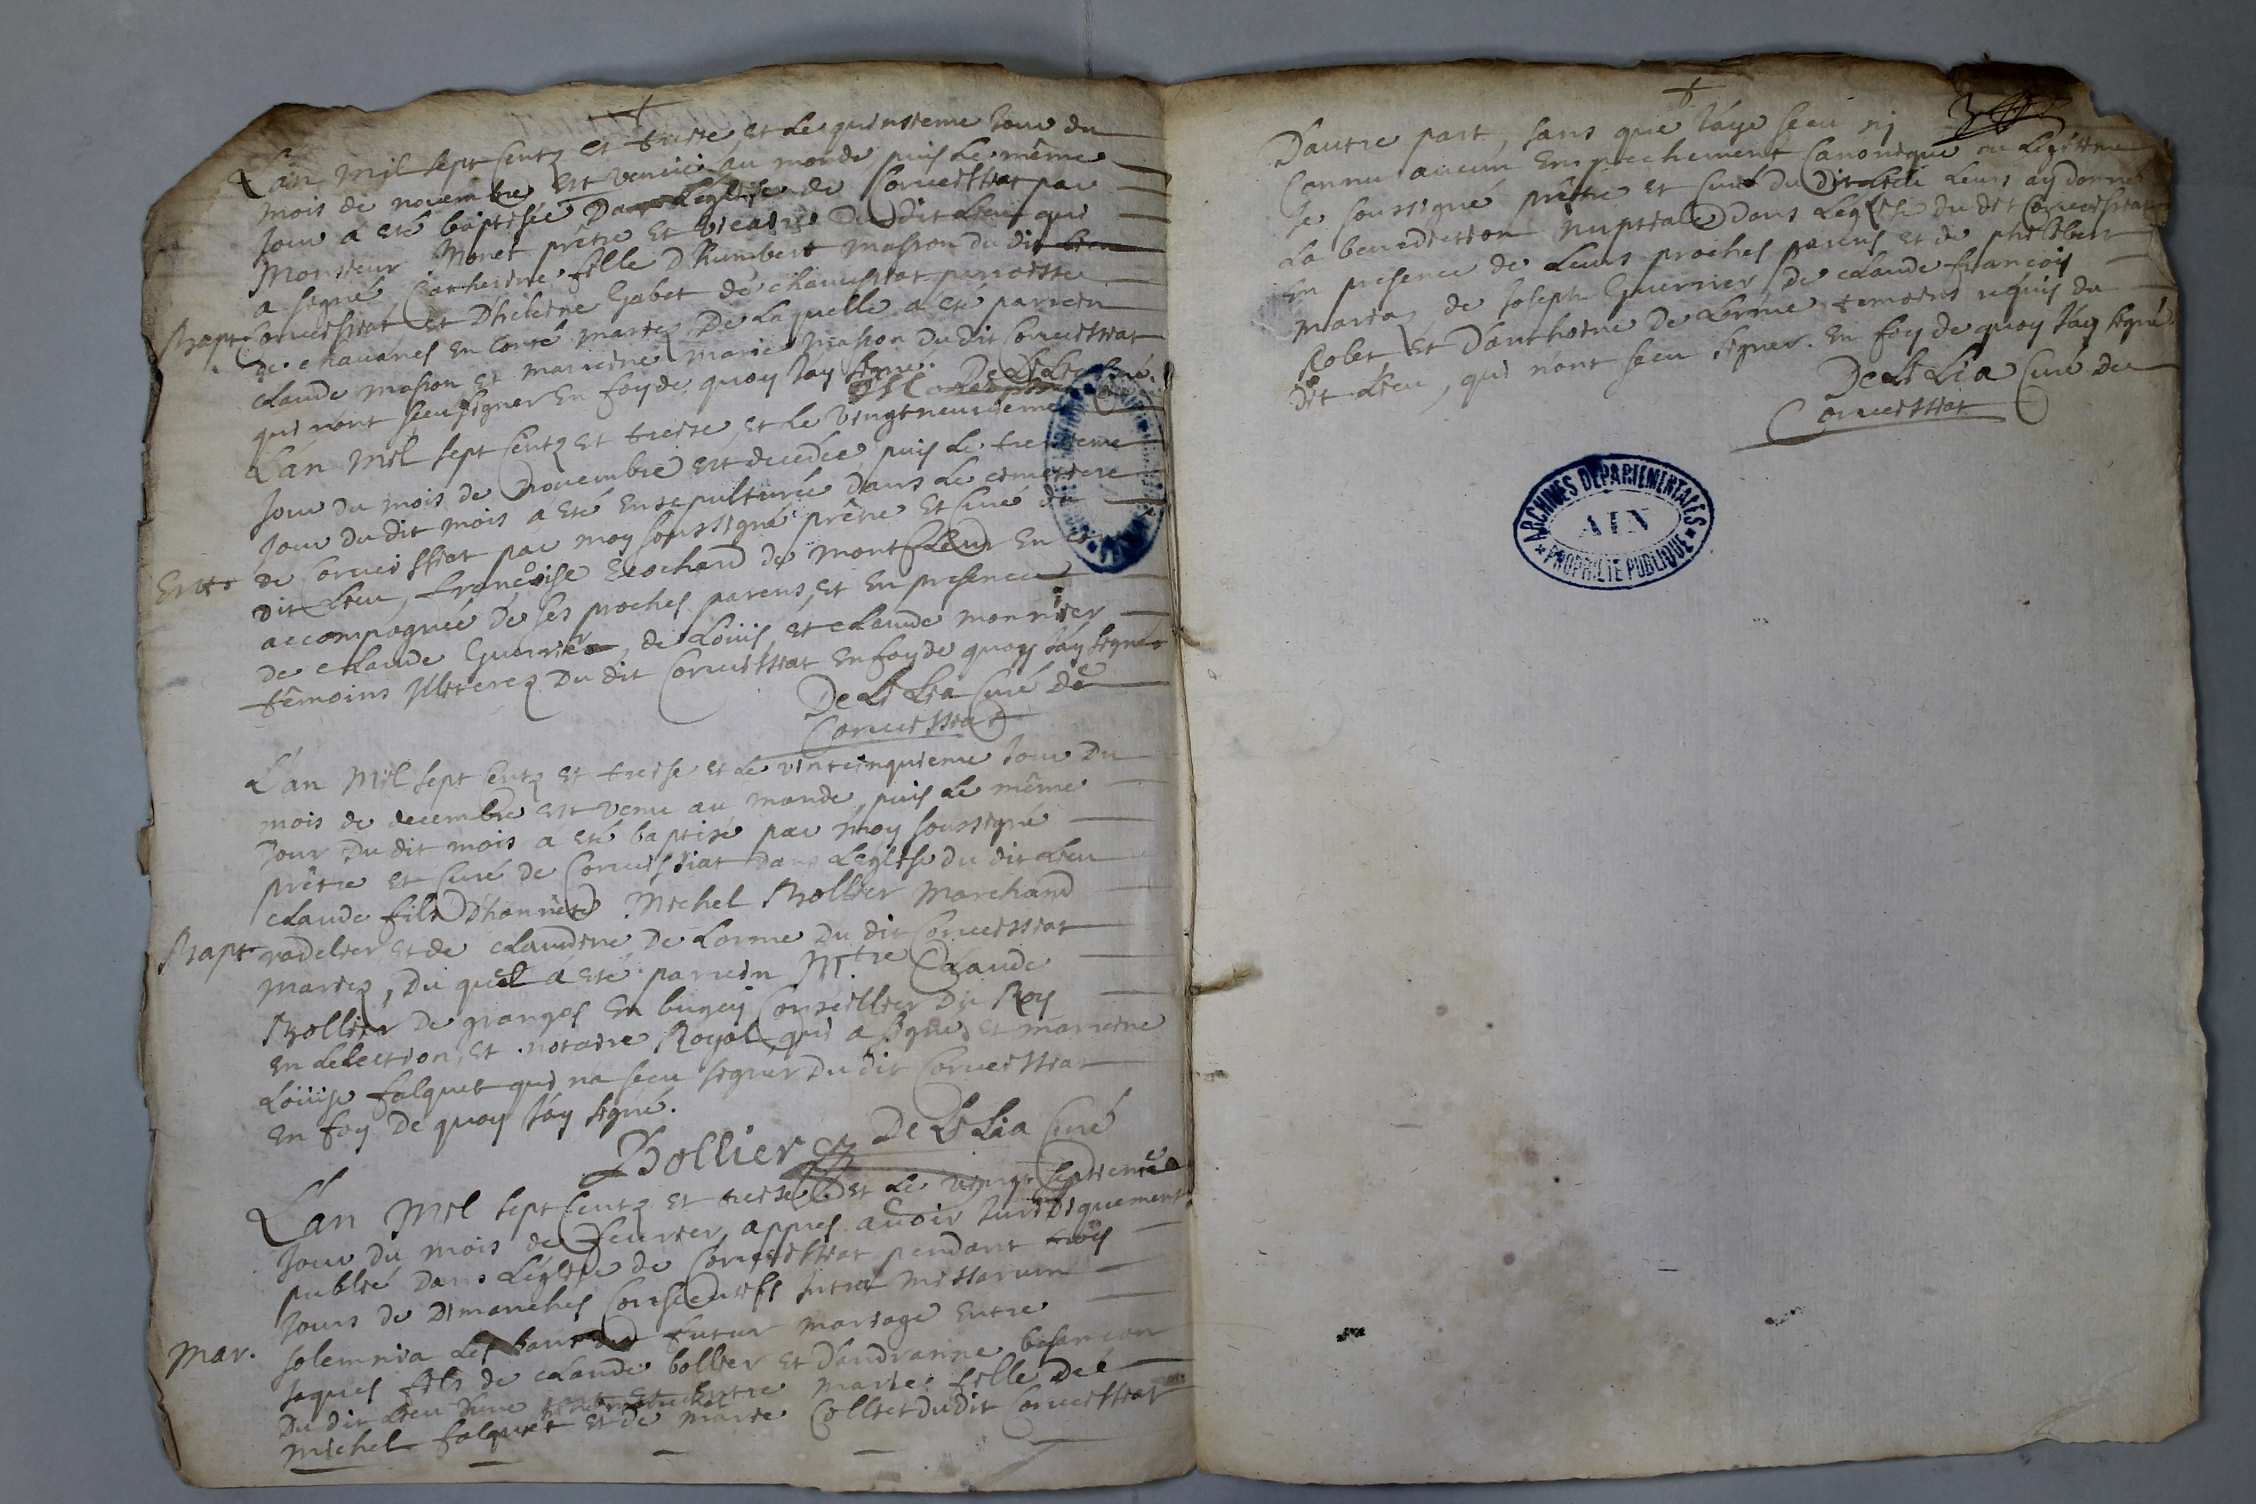 L'an mil sept centz et treise et le quinsieme jour du
mois de novembre est venüe au monde puis le même
jour a eté baptisée Dans L'église de Corveissiat par
Monsieur Monet prêtre et vicaire du dit Lieu qui
a signé, Catherine fille D'humbert masson du dit Lieu
Bapt. Corveissiat et D'hélene Gabet de chaveissiat parroisse
de chavanes en conté mariez De Laquelle a eté parrein
claude masson et marreine marie masson du dit Corveissiat
qui n'ont sceu signer En foy de quoy j'ay signé. De Li Lia Curé
L'an mil sept centz et treise, et le vingtneuvieme
jour du mois de novembre est decedée puis le trentieme
jour du dit mois a eté ensepulturée dans le cimetiere
de Corveissiat par moy soussigné prêtre et curé du
dit Lieu, françoise Brochand de montfleur En
accompagnée de ses proches parens, et en presence
de claude Guerrier, de Loüis, et claude monnier
têmoins illiterez Du dit Corveissiat En foy de quoy j'ay signé
De Li Lia Curé de
Corveissiat
L'an mil sept centz et treise et le vintcinquieme jour Du
mois de decembre est venu au monde, puis le même
jour Du dit mois a eté baptisé par moy soussigné
prêtre et Curé de Corveissiat dans L'église du dit Lieu
claude fils D'honnête Michel Bollier marchand
Bapt. radelier, et de claudine De Lorme Du dit Corveissiat
mariez, Du quel a eté parrein M.tre Claude
Bollier De granges en bugey Conseillier Du Roy
en L'election et notaire Royal, qui a signé, et marreine
Loüise falquet qui n'a sceu signer Du dit Corveissiat
en foy De quoy j'ay signé.
Bollier De Li Lia Curé
L'an mil sept centz et treise et le vingt septieme
jour du mois de fevrier, appres avoir juridiquement
publié dans L'église de Corveissiat pendant trois
jours de Dimanches consecutifs intra missarum
solemnia les bans du futur mariage entre
Mar. jaques fils de claude bollier et D'andreanne besançon
Du dit Lieu d'une part et Entre marie fille De
michel falquet et de marie Colliet du dit Corveissiat
D'autre part, sans que j'aye sceu ni
Connu aucun Empechement Canonique ou Legittime
je soussigné prêtre et curé du Dit Lieu Leurs ay donné
La benediction nuptiale dans L'eglise Du dit Corveissiat
En presence de Leurs proches parens et de philibert
maria, de joseph Guerrier, de claude françois
Robet et D'anthoine De Lorme temoins requis du
dit Lieu, qui n'ont sceu signer. En foy de quoy j'ay signé
De Li Lia Curé de
Corveissiat
ARCHIVES DEPARTEMENTALES
AIN
PROPRIETE PUBLIQUE